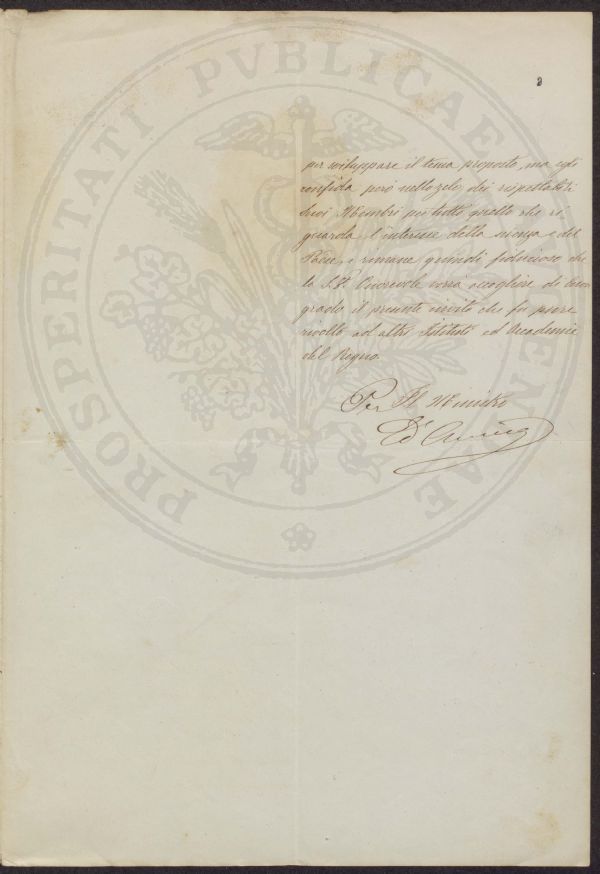 PROSPERITATI PVBLICAE AVGENDAE
per sviluppare il tema proposto, ma egli
confida però nello zelo dei rispettabili
suoi Membri per tutto quello che ri,
guarda l'interesse della scienza e del
Paese, e rimane quindi fiducioso che
la S. V. Onorevole vorrà accogliere di buon
grado il presente invito che fu pure
rivolto ad altri Istituti ed Accademie
del Regno.
Per Il Ministro